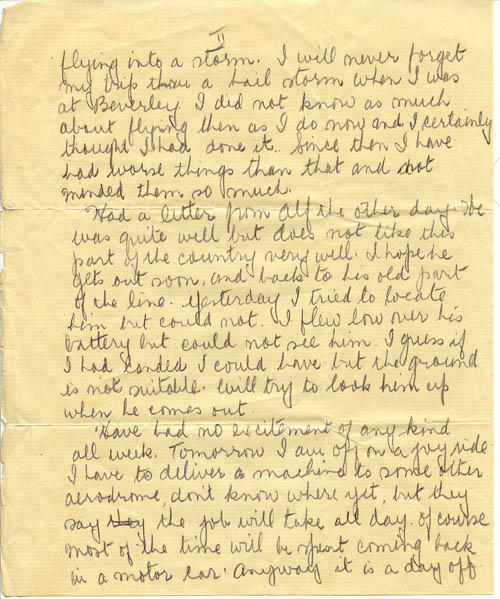 II
flying into a storm. I will never forget
my trip thru a hail storm when I was
at Beverley. I did not know as much
about flying then as I do now and I certainly
thought I had done it. Since then I have
had worse things than that and not
minded them so much.
Had a letter from Alf the other day. He
was quite well but does not like this
part of the country very well. I hope he
gets out soon, and back to his old part
of the line. Yesterday I tried to locate
him but could not. I flew low over his
battery but could not see him. I guess if
I had landed I could have but the ground
is not suitable. Will try to look him up
when he comes out.
Have had no excitement of any kind
all week. Tomorrow I am off on a joy ride
I have to deliver a machine to some other
aerodrome, don't know where yet, but they
say they the job will take all day. Of course
most of the time will be spent coming back
in a motor car. Anyway it is a day off